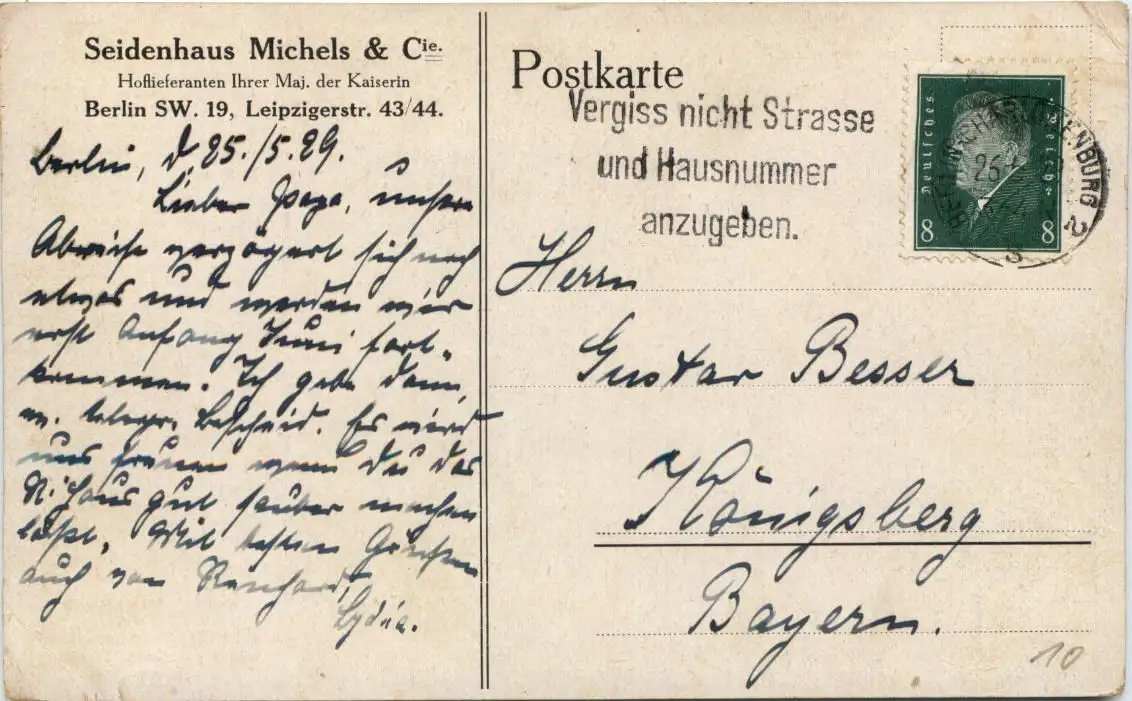 Seidenhaus Michels & Cie.
Hoflieferanten Ihrer Maj. der Kaiserin
Berlin SW. 19, Leipzigerstr. 43/44.
Berlin, d. 25./5.29.
Lieber Papa, unsere
Abreise verzögert sich noch
etwas und werden wir
erst Anfang Juni fort-
kommen. Ich gebe dann
Bescheid. Es wird
uns freuen wenn Du das
Haus gut sauber machen
läßt. Mit besten Grüßen
auch von
Lydia.
Postkarte
Vergiss nicht Strasse
und Hausnummer
anzugeben.
Deutsches Reich
8 8
BERLIN-CHARLOTTENBURG 2
Herrn
Gustav Besser
Königsberg
Bayern.
10